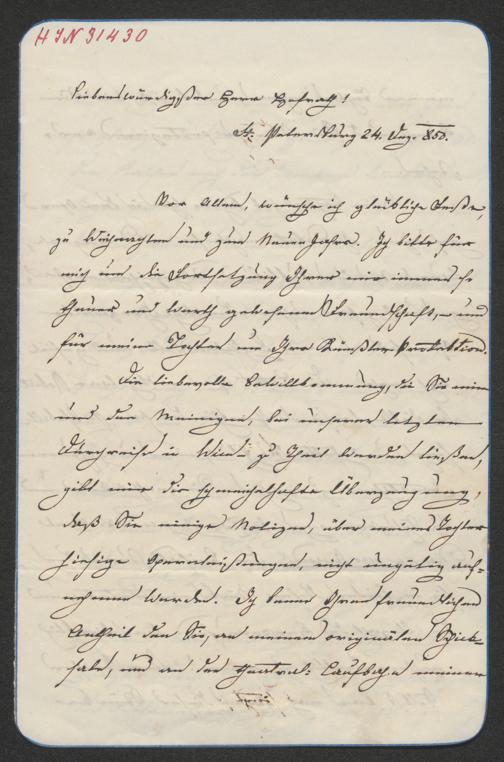 HIN 31430
Liebenswürdigster Herr Hofrath!
St. Petersburg 24. Dez. 850.
Vor Allem, wünsche ich glückliche Feste,
zu Weihnachten und zum Neuen Jahre. Ich bitte für
mich um die Fortsetzung Ihrer mir immer so
theuer und werth gewesenen Freundschaft, – und
für meine Tochter um Ihre Künstler Protektion.
Die liebevolle Bewillkommung, die Sie mir
und den Meinigen, bei unserer letzten
Durchreise in Wien zu Theil werden ließen,
gibt mir die schmeichelhafte Überzeugung,
daß Sie einige Notizen, über meiner Tochter
hiesige Opernleistungen, nicht ungütig auf=
nehmen werden. Ich kenne Ihren freundlichen
Antheil den Sie, an meinem originalen Schick=
sale, und an der theatral: Laufbahn meiner